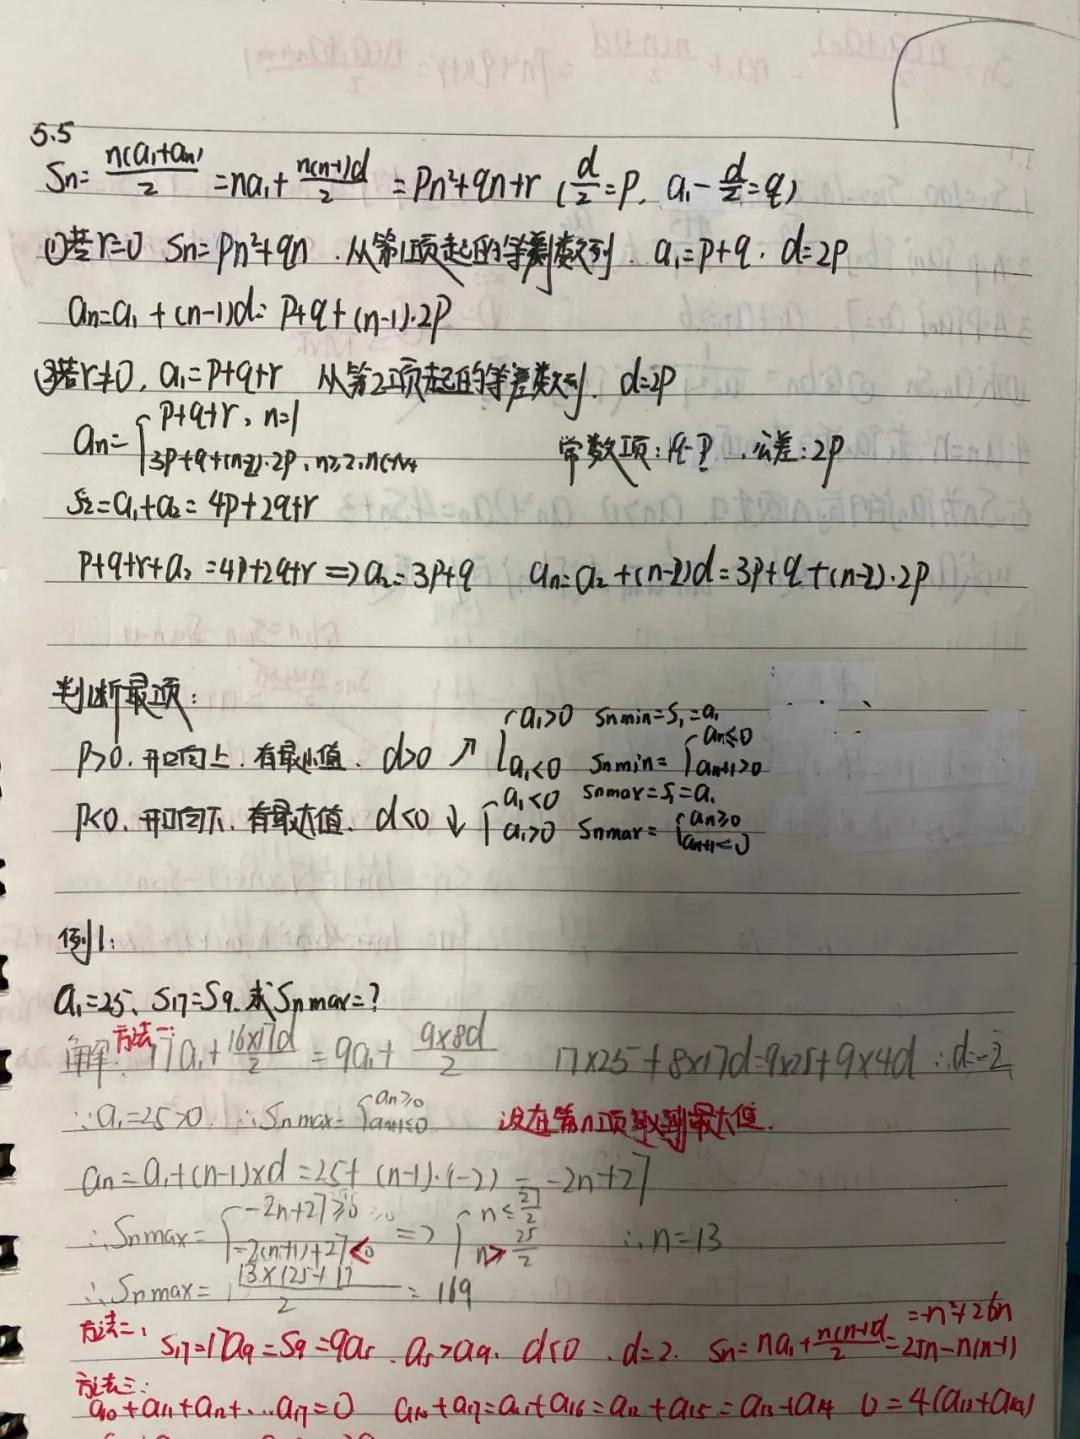 5.5
Sn=n(a₁+an)/2=na₁+n(n-1)d/2=pn²+qn+r(d/2=p, a₁-d/2=q)
①若r=0 Sn=pn²+qn.从第1项起的等差数列. a₁=p+q. d=2p
an=a₁+(n-1)d=p+q+(n-1)·2p
②若r≠0, a₁=p+q+r 从第2项起的等差数列. d=2p
an={p+q+r, n=1
3p+q+(n-2)·2p, n≥2, n∈N+ 常数项:q-p.公差:2p
S₂=a₁+a₂=4p+2q+r
p+q+r+a₂=4p+2q+r⇒a₂=3p+q an=a₂+(n-2)d=3p+q+(n-2)·2p
判断最项:
p>0.开口向上.有最小值. d>0↗{a₁>0 Snmin=S₁=a₁
a₁<0 Snmin={an≤0
an+1>0
p<0.开口向下.有最大值. d<0↓{a₁<0 Snmax=S₁=a₁
a₁>0 Snmax={an≥0
an+1<0
例1:
a₁=25、S17=S9.求Snmax=?
解:方法一:17a₁+16×17d/2=9a₁+9×8d/2 17×25+8×17d=9×25+9×4d ∴d=-2
∵a₁=25>0.∴Snmax={an≥0
an+1≤0 设在第n项取到最大值.
an=a₁+(n-1)×d=25+(n-1)·(-2)=-2n+27
∴Snmax={-2n+27≥0
-2(n+1)+27<0⇒{n≤27/2
n>25/2 ∴n=13
∴Snmax=13×(25+1)/2=169
方法二、S17=17a9=S9=9a5. a5>a9. d<0. d=2. Sn=na₁+n(n-1)d/2=25n-n(n-1)
=-n²+26n
方法三:
a10+a11+a12+…a17=0 a10+a17=a11+a16=a12+a15=a13+a14 0=4(a13+a14)